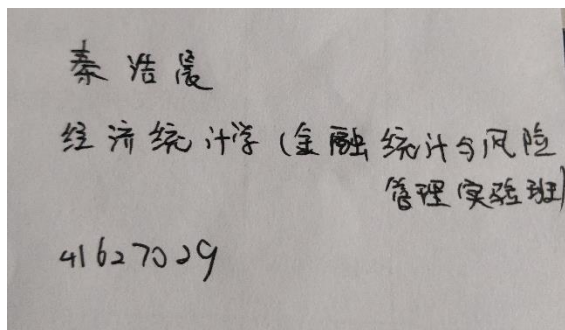 秦浩晨
经济统计学(金融统计与风险
管理实验班)
41627029